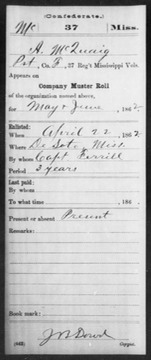 (Confederate.)
Mc 37 Miss.
A. McQuaig
Pvt., Co. F, 37 Reg't Mississippi Vols.
Appears on
Company Muster Roll
of the organization named above,
for May & June, 1862.
Enlisted:
When April 22, 1862
Where De Soto, Miss.
By whom Capt Ferrill
Period 3 years
Last paid:
By whom
To what time , 186 .
Present or absent Present
Remarks:
Book mark:
(642) Copyist.